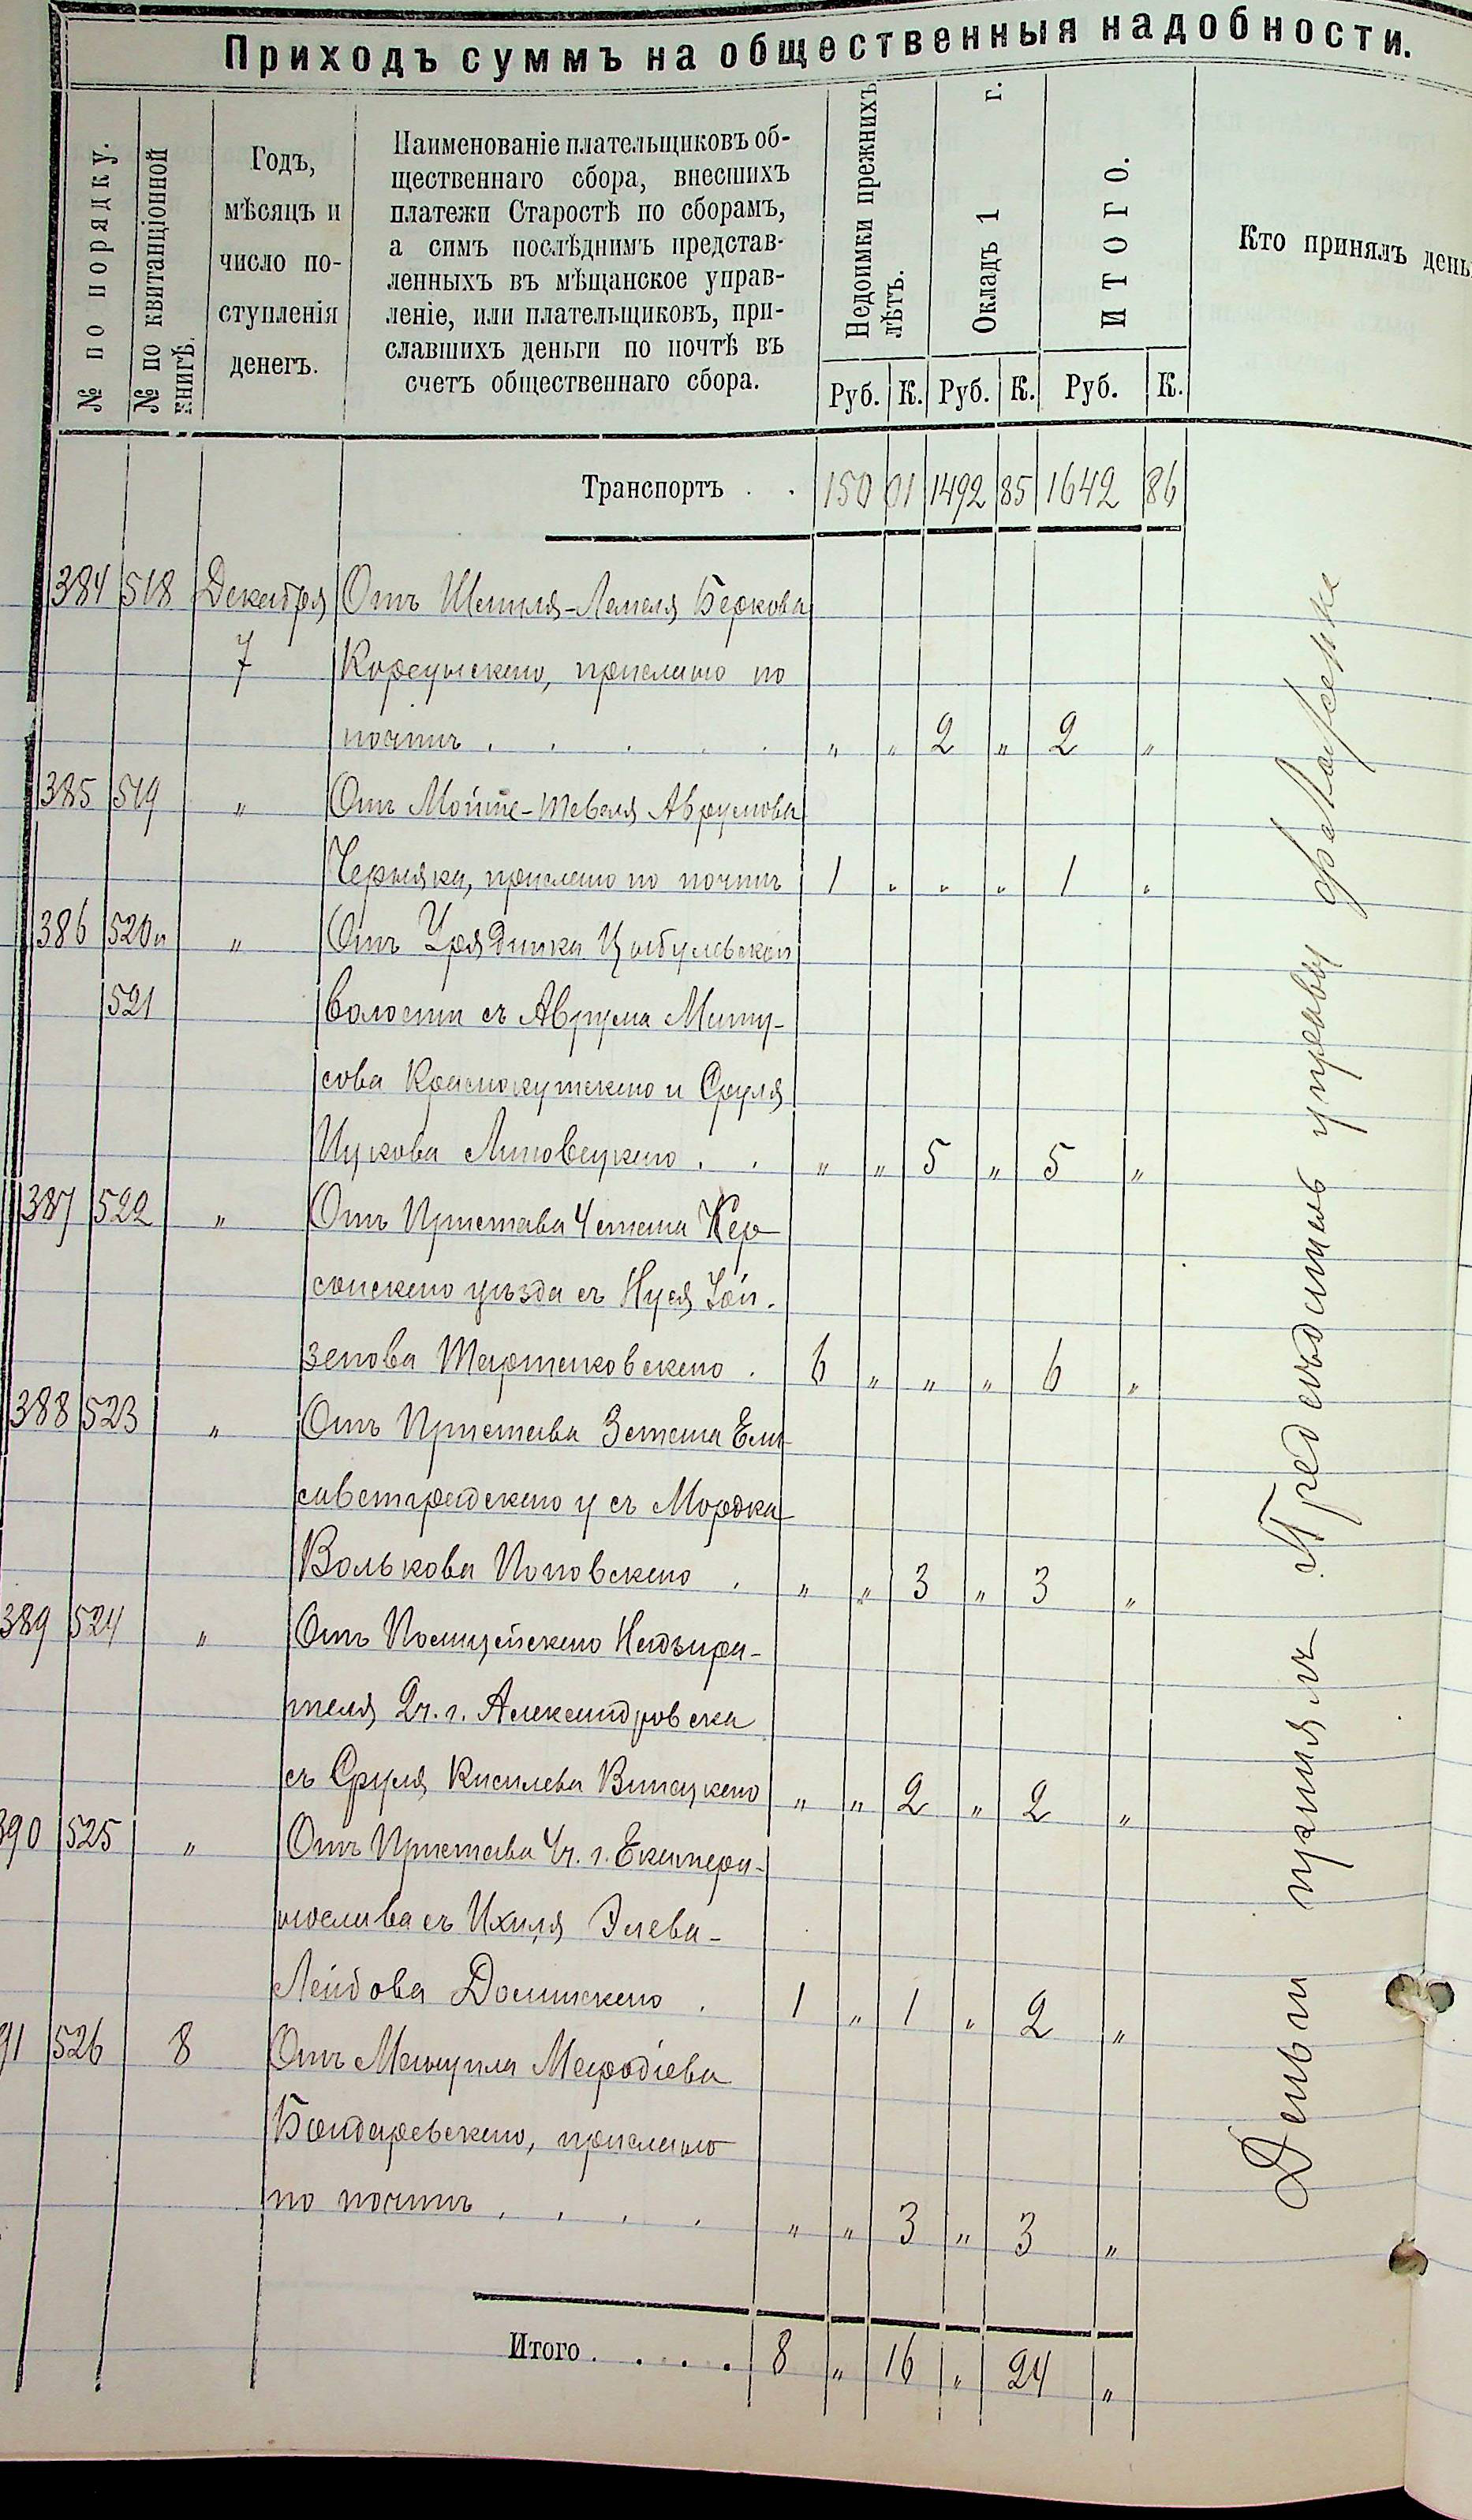 Приходъ суммъ на общественныя надобности.
№ по порядку.
№ по квитанціонной
книгѣ.
Годъ,
мѣсяцъ и
число по-
ступленія
денегъ.
Наименованіе плательщиковъ об-
щественнаго сбора, внесшихъ
платежи Старостѣ по сборамъ,
а симъ послѣднимъ представ-
ленныхъ въ мѣщанское управ-
леніе, или плательщиковъ, при-
славшихъ деньги по почтѣ въ
счетъ общественнаго сбора.
Недоимки прежнихъ
лѣтъ.
Окладъ 1 г.
ИТОГО.
Кто принялъ день
Руб. К. Руб. К. Руб. К.
Транспортъ . . 150 01 1492 85 1642 86
384 518 Декабря Отъ Шмиля-Лемеля Беркова
7 Корсунскаго, прислано по
почтѣ . . . . . „ „ 2 „ 2 „
385 519 „ Отъ Мойше-Шевеля Аврумова
Черняка, прислано по почтѣ 1 „ „ „ 1 „
386 520 и „ Отъ Урядника Цыбулевской
521 волости съ Аврума
Краснокутскаго и Сруля
Ицкова Липовецкаго . . „ „ 5 „ 5 „
387 522 „ Отъ Пристава 4 стана Хер-
сонскаго уѣзда съ Нуся
зепова . 6 „ „ „ 6 „
388 523 „ Отъ Пристава 3 стана Ели-
саветградскаго у съ Мордка
Волькова Поповскаго . „ „ 3 „ 3 „
389 524 „ Отъ Полицейскаго Надзира-
теля 2 ч. г. Александровска
съ Сруля Кисилева Винецкаго „ „ 2 „ 2 „
390 525 „ Отъ Пристава 4 ч. г. Екатери-
нослава съ Ихиля Элева-
Лейбова Долинскаго . 1 „ 1 „ 2 „
91 526 8 Отъ Мануила Мефодіева
Бондаревскаго, прислано
по почтѣ . . . . „ „ 3 „ 3 „
Итого . . . . . 8 „ 16 „ 24 „
Деньги принялъ Предсѣдатель управы